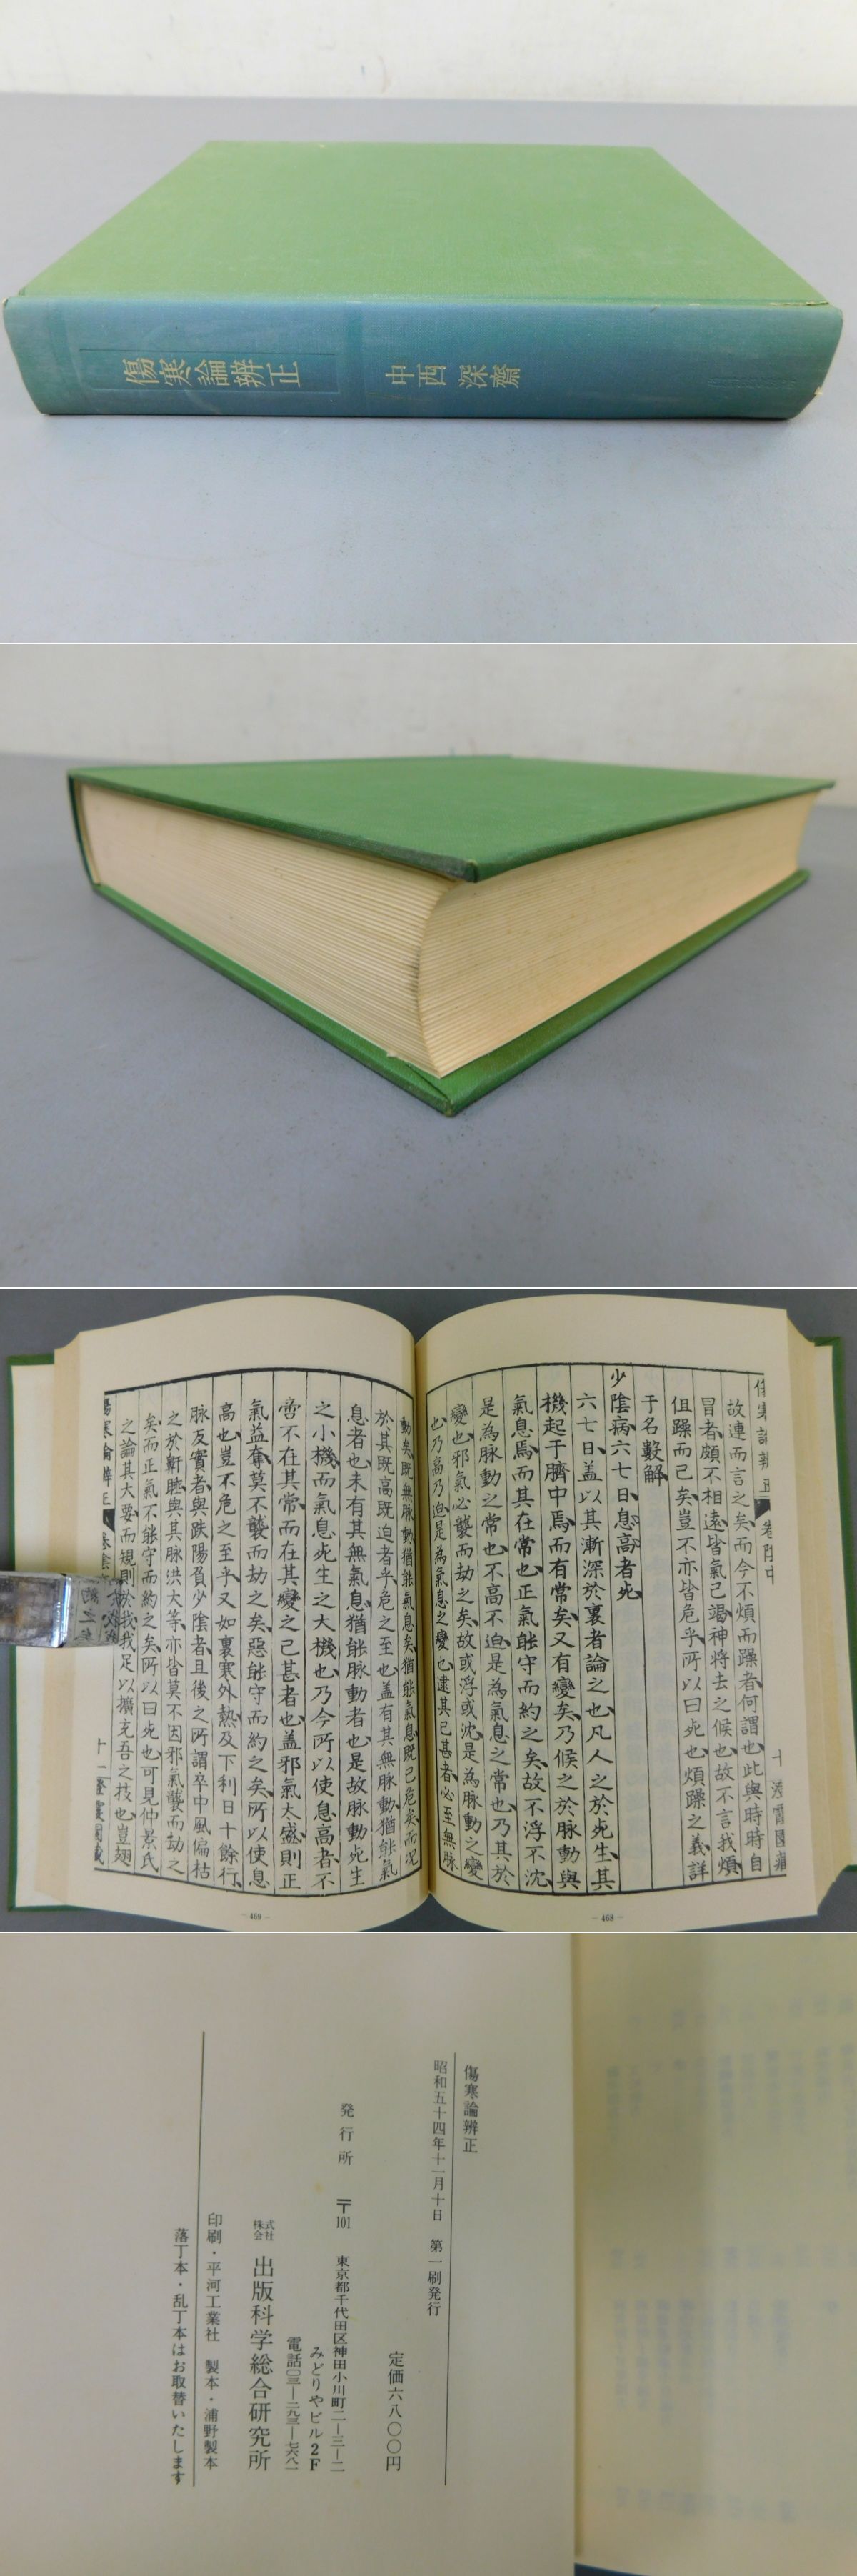 傷寒論辨正
中西 深齋
傷寒論辨正 卷陰中 十
故連而言之矣而今不煩而躁者何謂也此與時時自
冒者頗不相遠皆氣已竭神將去之候也故不言我煩
但躁而已矣豈不亦皆危乎所以曰死也煩躁之義詳
于名數解
少陰病六七日息高者死
六七日蓋以其漸深於裏者論之也凡人之於死生其
機起于臍中焉而有常矣又有變矣乃候之於脉動與
氣息焉而其在常也正氣能守而約之矣故不浮不沈
是為脉動之常也不高不迫是為氣息之常也乃其於
變也邪氣必襲而劫之矣故或浮或沈是為脉動之變
也乃高乃迫是為氣息之變也逮其已甚者必至無脉
動矣既無脉動猶能氣息矣猶能氣息既已危矣而況
於其既高既迫者乎危之至也蓋有其無脉動猶能氣
息者也未有其無氣息猶能脉動者也是故脉動死生
之小機而氣息死生之大機也乃今所以使息高者不
啻不在其常而在其變之已甚者也蓋邪氣大盛則正
氣益奪莫不襲而劫之矣惡能守而約之矣所以使息
高也豈不危之至乎又如裏寒外熱及下利日十餘行
脉反實者與趺陽負少陰者且後之所謂卒中風偏枯
之於鼾睡與其脉洪大等亦皆莫不因邪氣襲而劫之
矣而正氣不能守而約之矣所以曰死也可見仲景氏
之論其大要而規則於我我足以擴充吾之技也豈翅
傷寒論辨正 十一
— 468 —
— 469 —
傷寒論辨正
昭和五十四年十一月十日 第一刷発行
定価六八〇〇円
発行所 〒101 東京都千代田区神田小川町二―三―二
みどりやビル2F
電話〇三―二九三―七六八一
株式会社 出版科学総合研究所
印刷・平河工業社 製本・浦野製本
落丁本・乱丁本はお取替いたします